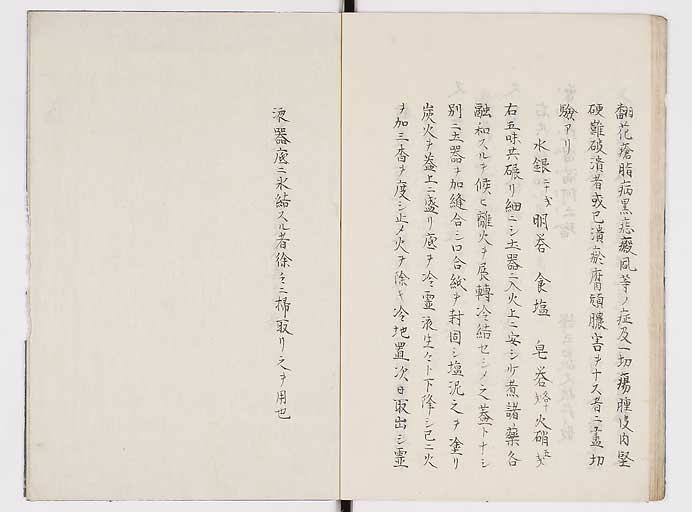 翻花瘡脂病黒痣癜風等ノ症及一切瘍腫皮肉堅
硬難破潰者或已潰瘀腐頑膿害ヲナス者ニ孟切
驗アリ
水銀 明礬 食塩 皂礬 火硝
右五味共碾リ細ニシ土器ニ入火上ニ安シ炉煮諸藥各
融和スルヲ候ヒ離火ヲ展轉冷結セシメ之蓋トナシ
別ニ土器ヲ加縫合シ口合紙ヲ封固シ塩泥之ヲ塗リ
炭火ヲ蓋上ニ盛リ底ヲ冷霊液生々ト下降シ已ニ火
ヲ加三香ヲ度シ止メ火ヲ除キ冷地置次日取出シ霊
液器底ニ氷結スル者徐々ニ掃取リ之ヲ用也